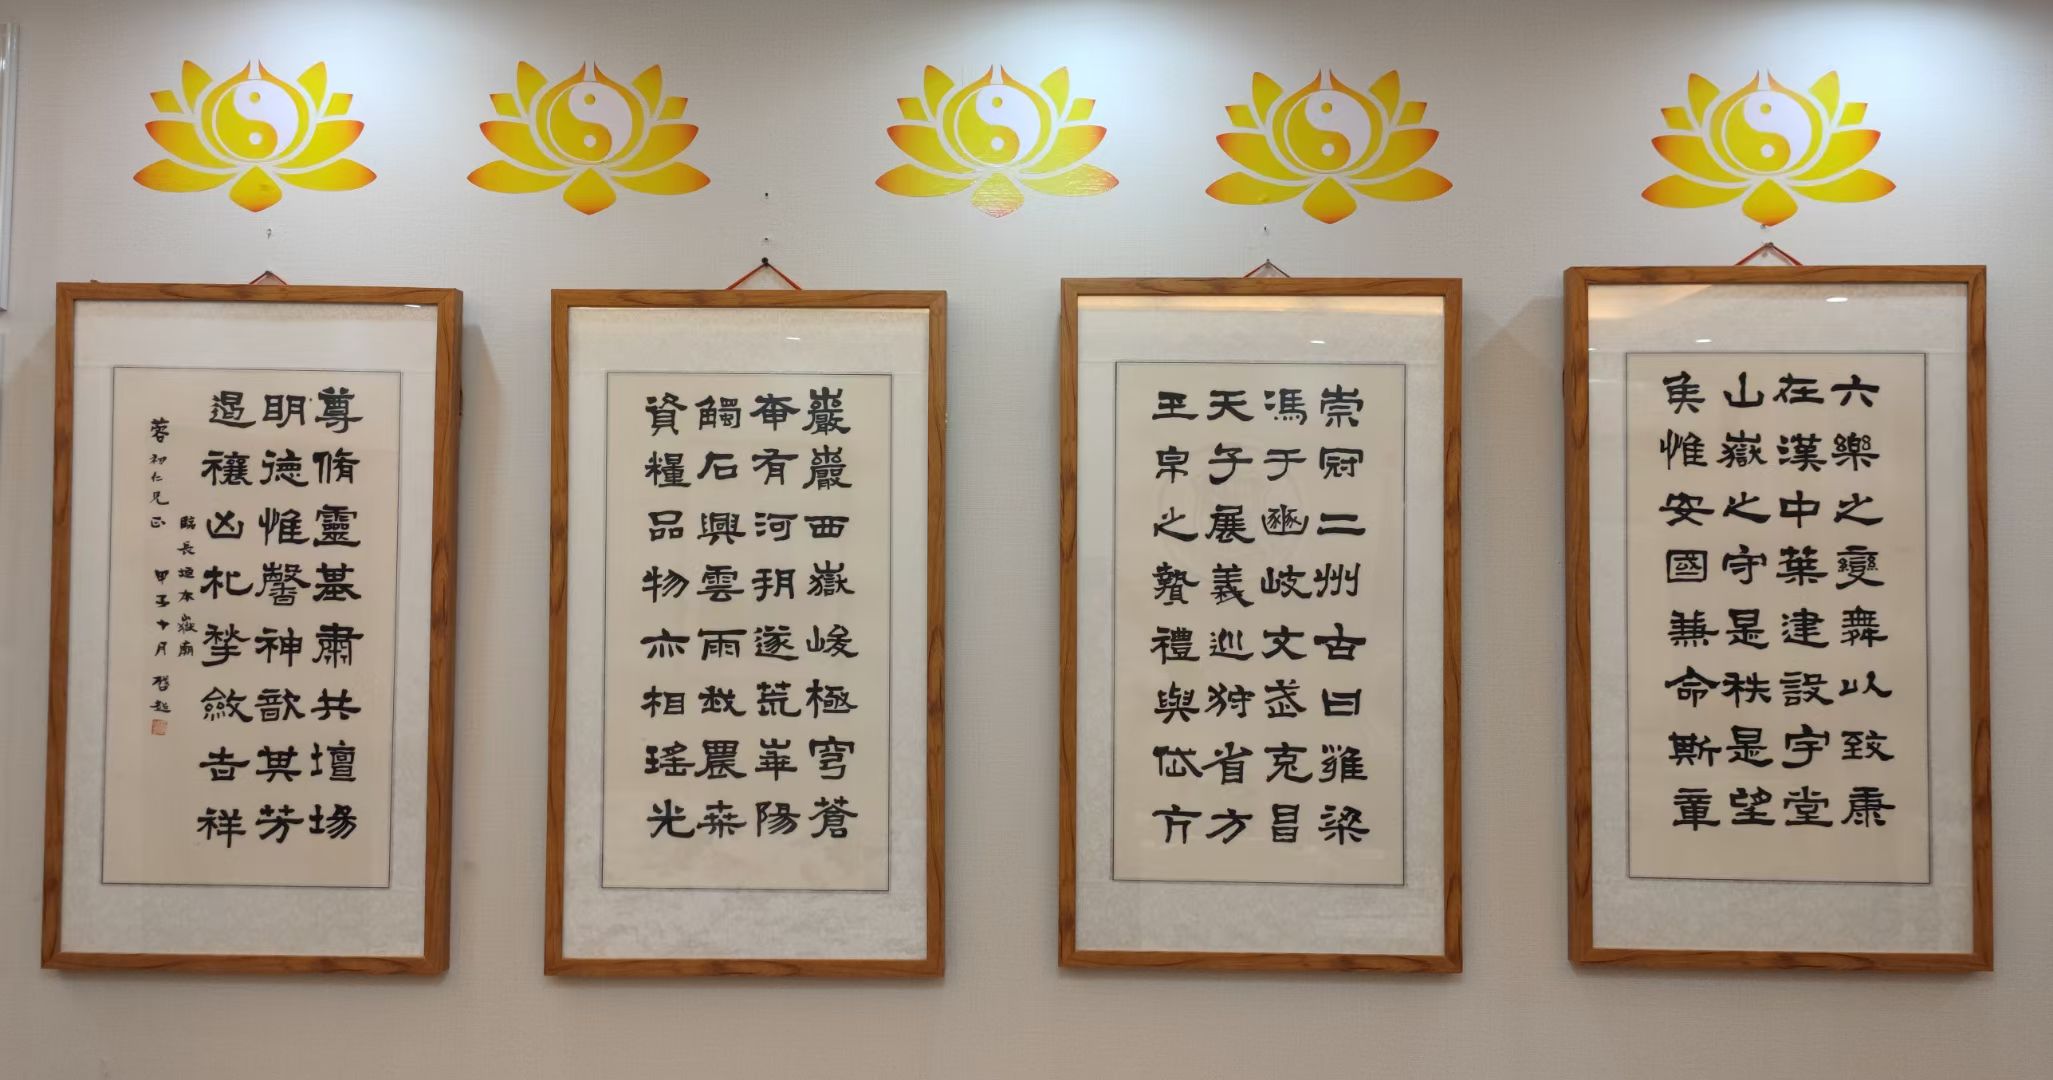 巖巖西嶽峻極穹蒼
奄有河朔遂荒崋陽
觸石興雲雨我農桑
資糧品物亦相瑤光
崇冠二州古曰雍梁
馮于豳岐文武克昌
天子展義巡狩省方
玉帛之贄禮與岱亢
六樂之變舞以致康
在漢中葉建設宇堂
山嶽之守是秩是望
侯惟安國兼命斯章
尊脩靈基肅共壇場
明德惟馨神歆其芳
遏禳凶札揫斂吉祥
臨長垣本嶽廟
蓉初仁兄正 甲子十月 啓超